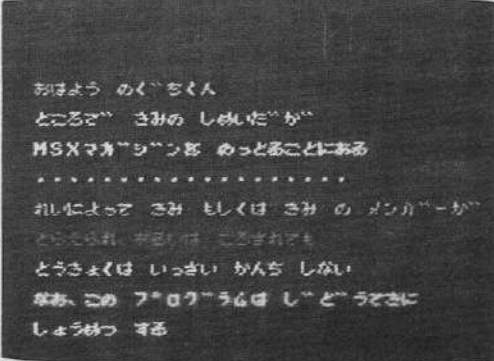 おはよう のく゛ちくん
ところて゛ きみの しめいた゛か゛
MSXマカ゛シ゛ンを のっとることにある
・・・・・・・・・・・・・・・・・・・
れいによって きみ もしくは きみ の メンハ゛ーか゛
とらえられ あるいは ころされても
とうきょくは いっさい かんち しない
なお、この フ゜ロク゛ラムは し゛と゛うてきに
しょうめつ する